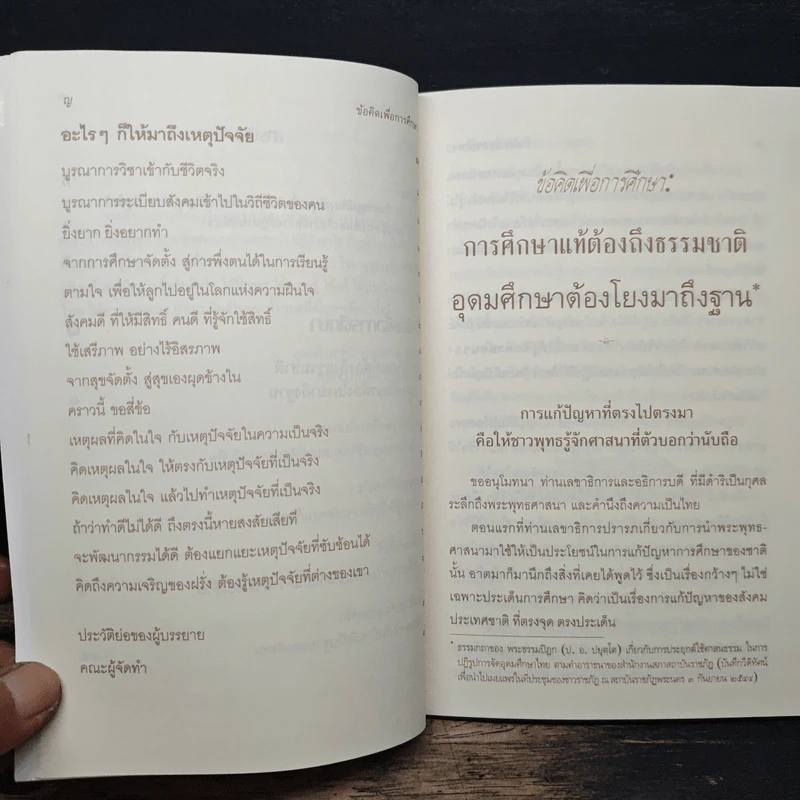 ญ
ข้อคิดเพื่อการศึกษา
อะไรๆ ก็ให้มาถึงเหตุปัจจัย
บูรณาการวิชาเข้ากับชีวิตจริง
บูรณาการระเบียบสังคมเข้าไปในวิถีชีวิตของคน
ยิ่งยาก ยิ่งอยากทำ
จากการศึกษาจัดตั้ง สู่การพึ่งตนได้ในการเรียนรู้
ตามใจ เพื่อให้ลูกไปอยู่ในโลกแห่งความฝืนใจ
สังคมดี ที่ให้มีสิทธิ์ คนดี ที่รู้จักใช้สิทธิ์
ใช้เสรีภาพ อย่างไร้อิสรภาพ
จากสุขจัดตั้ง สู่สุขเองผุดข้างใน
คราวนี้ ขอสี่ข้อ
เหตุผลที่คิดในใจ กับเหตุปัจจัยในความเป็นจริง
คิดเหตุผลในใจ ให้ตรงกับเหตุปัจจัยที่เป็นจริง
คิดเหตุผลในใจ แล้วไปทำเหตุปัจจัยที่เป็นจริง
ถ้าว่าทำดีไม่ได้ดี ถึงตรงนี้หายสงสัยเสียที
จะพัฒนากรรมได้ดี ต้องแยกแยะเหตุปัจจัยที่ซับซ้อนได้
คิดถึงความเจริญของฝรั่ง ต้องรู้เหตุปัจจัยที่ต่างของเขา
ประวัติย่อของผู้บรรยาย
คณะผู้จัดทำ
ข้อคิดเพื่อการศึกษา:
การศึกษาแท้ต้องถึงธรรมชาติ
อุดมศึกษาต้องโยงมาถึงฐาน*
การแก้ปัญหาที่ตรงไปตรงมา
คือให้ชาวพุทธรู้จักศาสนาที่ตัวบอกว่านับถือ
ขออนุโมทนา ท่านเลขาธิการและอธิการบดี ที่มีดำริเป็นกุศล
ระลึกถึงพระพุทธศาสนา และคำนึงถึงความเป็นไทย
ตอนแรกที่ท่านเลขาธิการปรารภเกี่ยวกับการนำพระพุทธ-
ศาสนามาใช้ให้เป็นประโยชน์ในการแก้ปัญหาการศึกษาของชาติ
นั้น อาตมาก็มานึกถึงสิ่งที่เคยได้พูดไว้ ซึ่งเป็นเรื่องกว้างๆ ไม่ใช่
เฉพาะประเด็นการศึกษา คิดว่าเป็นเรื่องการแก้ปัญหาของสังคม
ประเทศชาติ ที่ตรงจุด ตรงประเด็น
* ธรรมกถาของ พระธรรมปิฎก (ป. อ. ปยุตฺโต) เกี่ยวกับการประยุกต์ใช้ศาสนธรรม ในการ
ปฏิรูปการจัดอุดมศึกษาไทย ตามคำอาราธนาของสำนักงานสภาสถาบันราชภัฏ (บันทึกวีดิทัศน์
เพื่อนำไปเผยแพร่ในที่ประชุมของชาวราชภัฏ ณ สถาบันราชภัฏพระนคร ๓ กันยายน ๒๕๔๔)